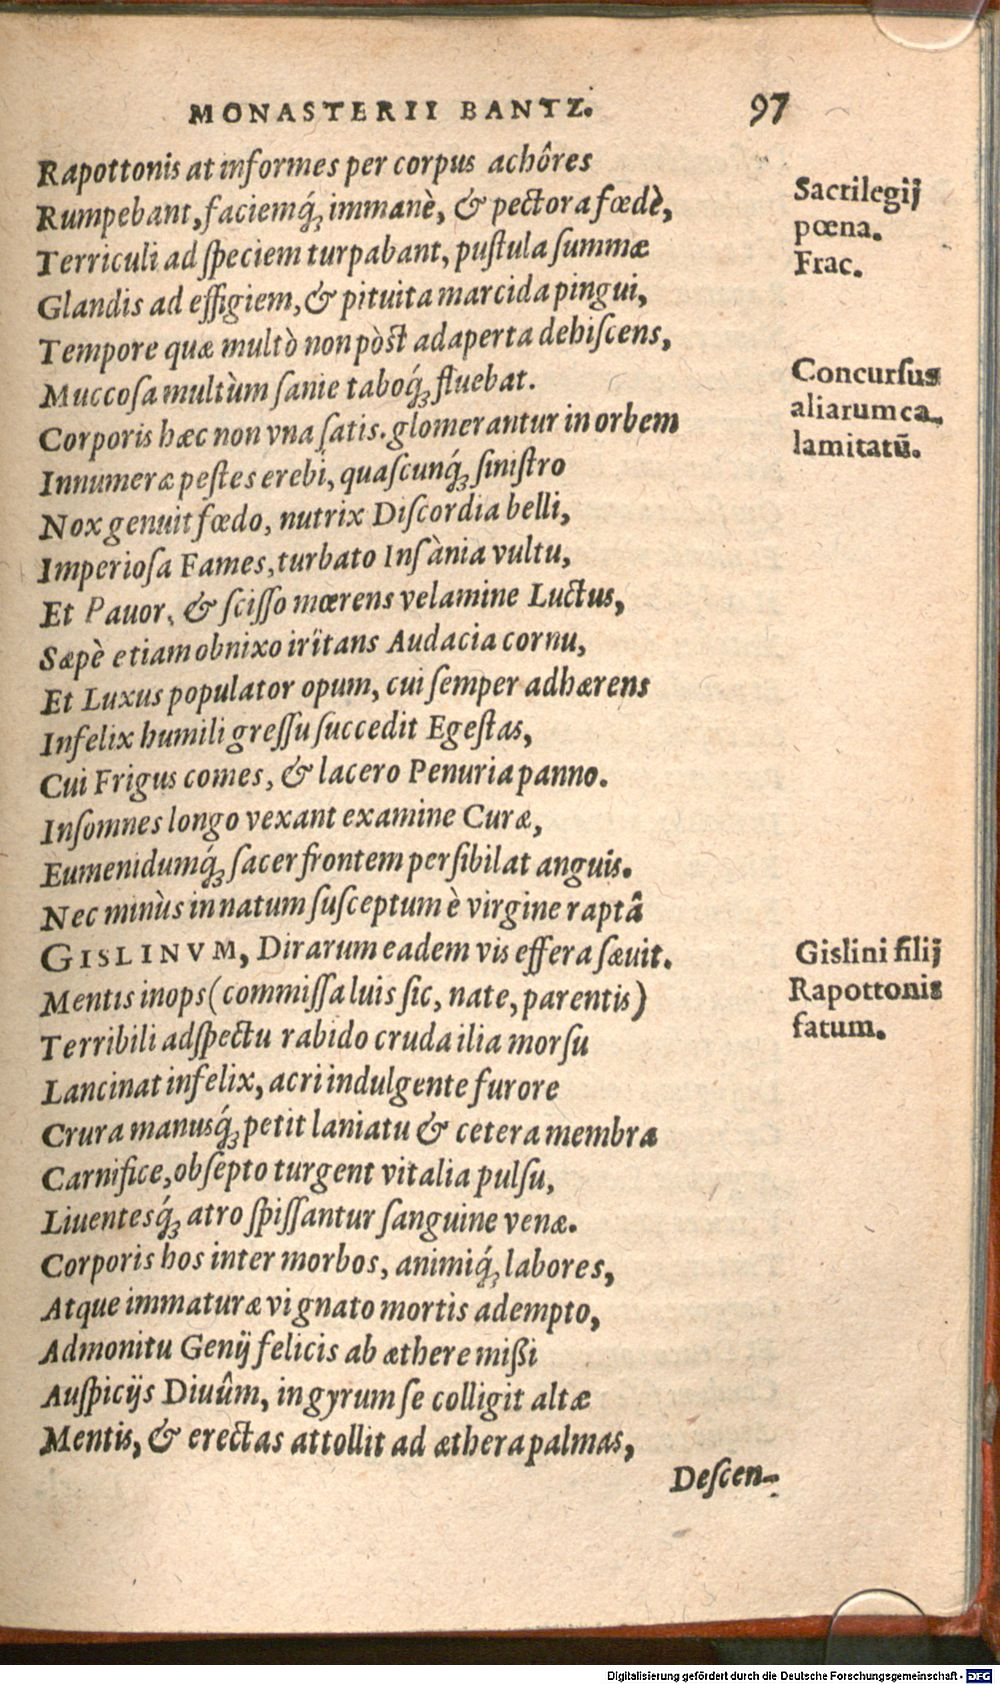 MONASTERII BANTZ. 97
Rapottonis at informes per corpus achôres
Rumpebant, faciemq́ꝫ immanè, & pectora fœdè,
Terriculi ad ſpeciem turpabant, puſtula ſummæ
Glandis ad effigiem, & pituita marcida pingui,
Tempore quæ multò non pòſt adaperta dehiſcens,
Muccoſa multùm ſanie taboq́ꝫ fluebat.
Corporis hæc non vna ſatis. glomerantur in orbem
Innumeræ peſtes erebi, quaſcunq́ꝫ ſiniſtro
Nox genuit fœdo, nutrix Diſcordia belli,
Imperioſa Fames, turbato Inſània vultu,
Et Pavor, & ſciſſo mœrens velamine Luctus,
Sæpè etiam obnixo irïtans Audacia cornu,
Et Luxus populator opum, cui ſemper adhærens
Infelix humili greſſu ſuccedit Egeſtas,
Cui Frigus comes, & lacero Penuria panno.
Inſomnes longo vexant examine Curæ,
Eumenidumq́ꝫ ſacer frontem perſibilat anguis.
Nec minùs in natum ſuſceptum è virgine raptâ
GISLINVM, Dirarum eadem vis effera ſæuit.
Mentis inops (commiſſa luis ſic, nate, parentis)
Terribili adſpectu rabido cruda ilia morſu
Lancinat infelix, acri indulgente furore
Crura manusq́ꝫ petit laniatu & cetera membra
Carnifice, obſepto turgent vitalia pulſu,
Liuentesq́ꝫ atro ſpiſſantur ſanguine venæ.
Corporis hos inter morbos, animiq́ꝫ labores,
Atque immaturæ vi gnato mortis adempto,
Admonitu Genij felicis ab æthere miſſi
Auſpicijs Diuûm, in gyrum ſe colligit altæ
Mentis, & erectas attollit ad æthera palmas,
Deſcen-
Sacrilegij
pœna.
Frac.
Concurſus
aliarum ca-
lamitatū.
Gislini filij
Rapottonis
fatum.
Digitalisierung gefördert durch die Deutsche Forschungsgemeinschaft - DFG